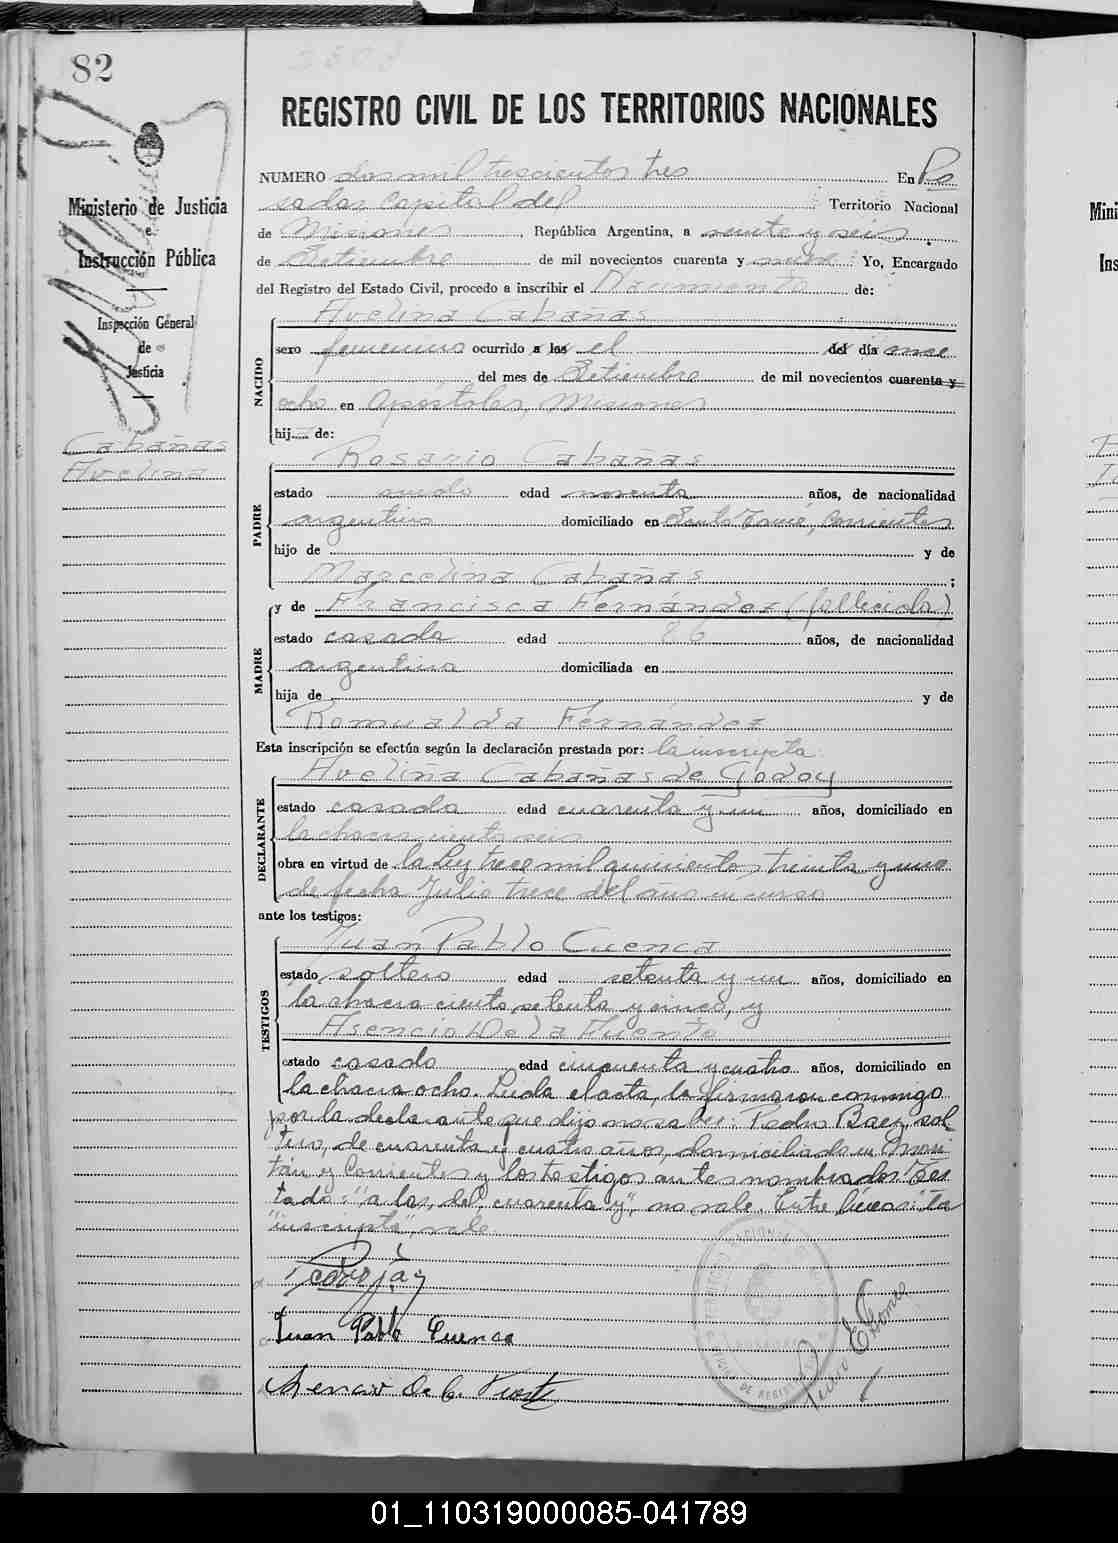 82
REGISTRO CIVIL DE LOS TERRITORIOS NACIONALES
Ministerio de Justicia
e
Instrucción Pública
Inspección General
de
Justicia
Cabañas
Avelina
NUMERO dos mil trescientos tres En Po
sadas Capital del Territorio Nacional
de Misiones, República Argentina, a veinte y seis
de Setiembre de mil novecientos cuarenta y nueve Yo, Encargado
del Registro del Estado Civil, procedo a inscribir el Nacimiento de:
NACIDO
Avelina Cabañas
sexo femenino ocurrido a las el del día once
del mes de Setiembre de mil novecientos cuarenta y
ocho en Apóstoles, Misiones
hija de:
PADRE
Rosario Cabañas
estado viudo edad noventa años, de nacionalidad
argentino domiciliado en Santo Tomé, Corrientes
hijo de y de
Marcelina Cabañas ;
MADRE
y de Francisca Fernández (fallecida)
estado casada edad 86 años, de nacionalidad
argentina domiciliada en
hija de y de
Romualda Fernández
Esta inscripción se efectúa según la declaración prestada por: la inscripta
DECLARANTE
Avelina Cabañas de Godoy
estado casada edad cuarenta y un años, domiciliado en
la chacra ciento seis
obra en virtud de la Ley trece mil quinientos treinta y uno
de fecha Julio trece del año en curso
ante los testigos:
TESTIGOS
Juan Pablo Cuenca
estado soltero edad setenta y un años, domiciliado en
la chacra ciento setenta y cinco, y
Asencio De la Fuente
estado casado edad cincuenta y cuatro años, domiciliado en
la chacra ocho. Leida el acta, la firmaron conmigo
por la declarante que dijo no saber: Pedro Baez, sol
tero, de cuarenta y cuatro años, domiciliado en
y Corrientes y los testigos antes nombrados Tes
tado: "a las, del, cuarenta y", no vale. Entre líneas: "la
inscripta", vale.
Juan Pablo Cuenca
Asencio De la Fuente
01_110319000085-041789